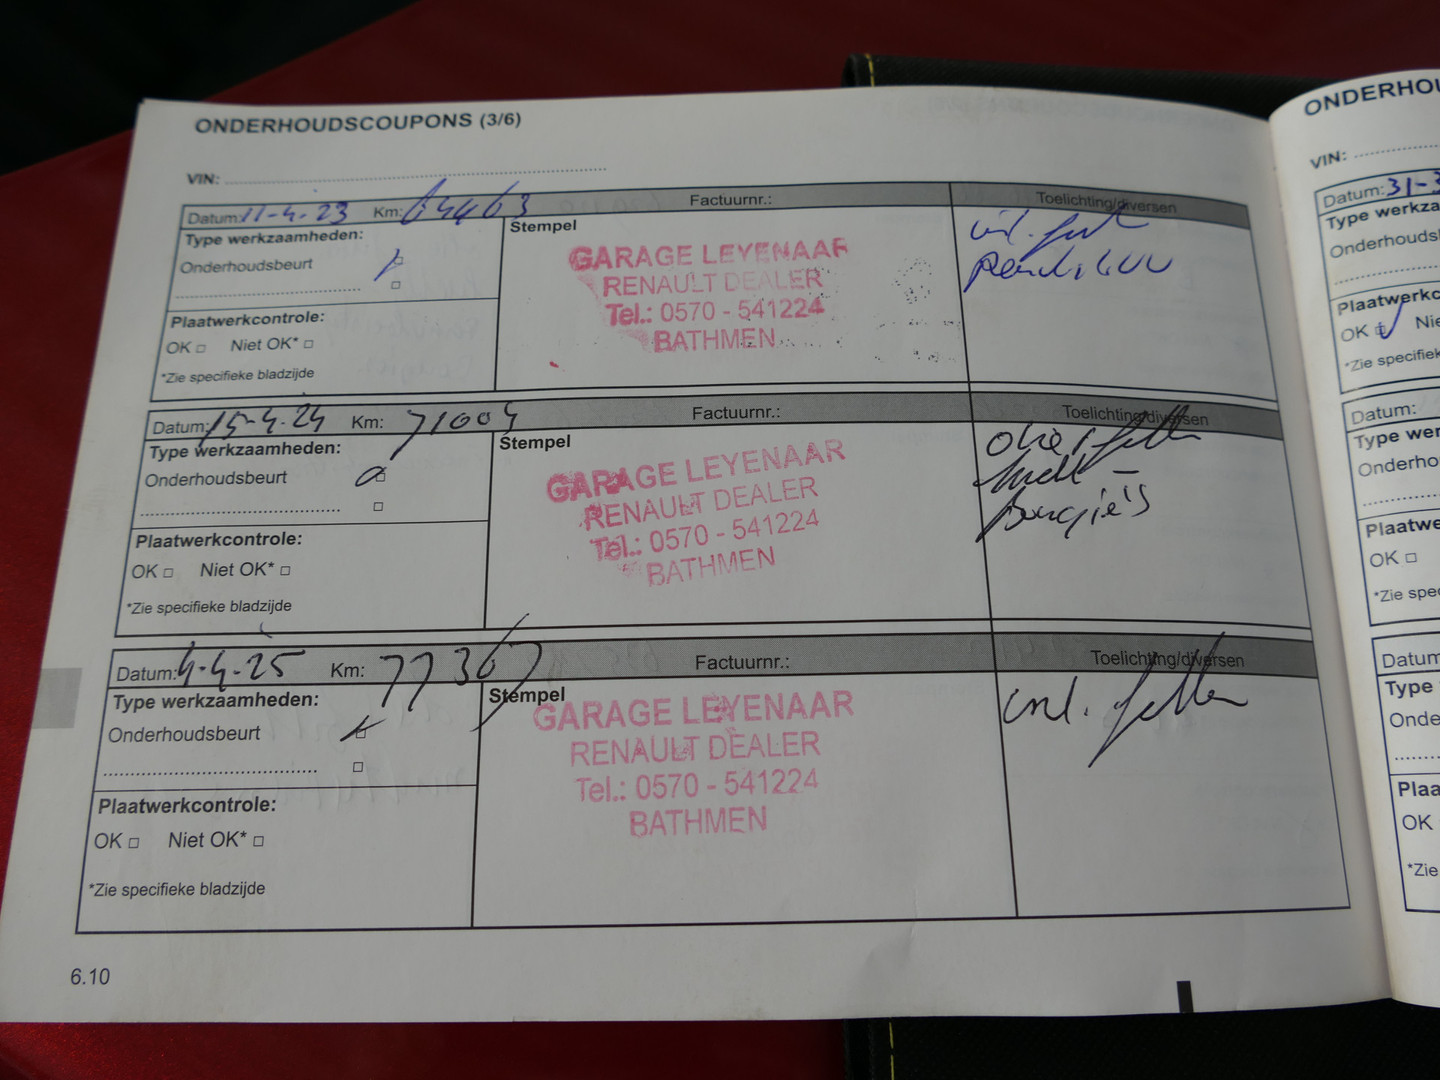 ONDERHOUDSCOUPONS (3/6)
VIN:
Datum: 11-4-23 Km: 64463 Factuurnr.: Toelichting/diversen
Type werkzaamheden:
Onderhoudsbeurt
Plaatwerkcontrole:
OK □ Niet OK* □
*Zie specifieke bladzijde
Stempel
GARAGE LEYENAAR
RENAULT DEALER
Tel.: 0570 - 541224
BATHMEN
Datum: 15-4-24 Km: 71004 Factuurnr.: Toelichting/diversen
Type werkzaamheden:
Onderhoudsbeurt
Plaatwerkcontrole:
OK □ Niet OK* □
*Zie specifieke bladzijde
Stempel
GARAGE LEYENAAR
RENAULT DEALER
Tel.: 0570 - 541224
BATHMEN
bougie's
Datum: 4-4-25 Km: 77367 Factuurnr.: Toelichting/diversen
Type werkzaamheden:
Onderhoudsbeurt
Plaatwerkcontrole:
OK □ Niet OK* □
*Zie specifieke bladzijde
Stempel
GARAGE LEYENAAR
RENAULT DEALER
Tel.: 0570 - 541224
BATHMEN
6.10
VIN:
Datum: 31-
OK
*Zie specifiek
Datum:
OK □
OK
*Zie